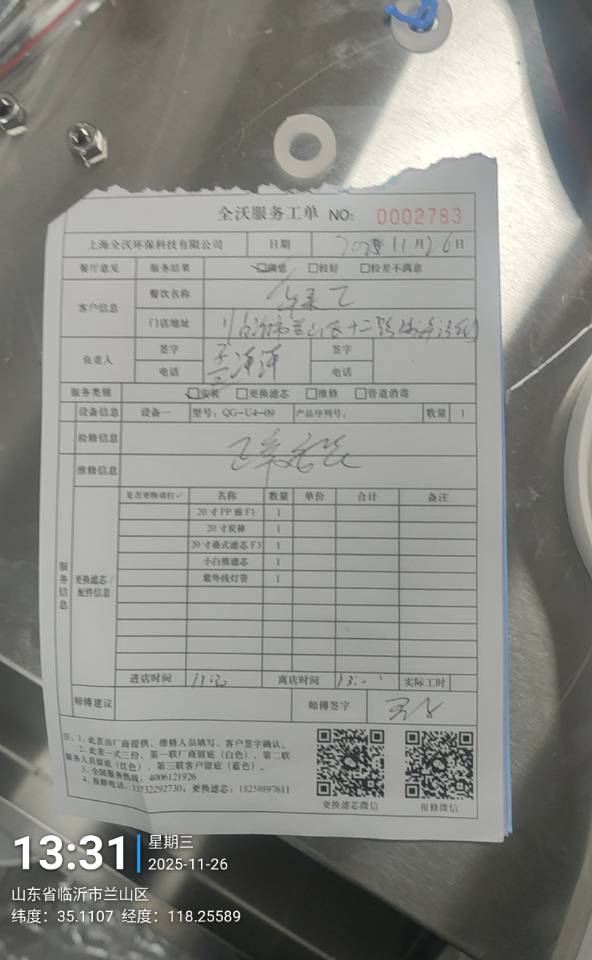 全沃服务工单 NO: 0002783
上海全沃环保科技有限公司 日期 2025年11月26日
餐厅意见 服务结果 ☑满意 □较好 □较差不满意
客户信息 餐饮名称
门店地址 临沂市兰山区十二路
负责人 签字 签字
电话 电话
服务类别 ☑安装 □更换滤芯 □维修 □管道消毒
设备信息 设备一 型号: QG-U4-09 产品序列号: 数量 1
检修信息
维修信息
服务信息
更换滤芯/配件信息
是否更换请打✓ 名称 数量 单价 合计 备注
20寸PP棉F1 1
20寸炭棒 1
20寸叠式滤芯F3 1
小白熊滤芯 1
紫外线灯管 1
进店时间 离店时间 实际工时
师傅建议 师傅签字
注: 1. 此表由厂商提供、维修人员填写、客户签字确认。
2. 此表一式三份, 第一联厂商留底(白色), 第二联
服务人员留底(红色), 第三联客户留底(蓝色)。
3. 全国服务热线: 4006121926
4. 报修电话: 更换滤芯: 18258897611
更换滤芯微信 报修微信
13:31 星期三
2025-11-26
山东省临沂市兰山区
纬度: 35.1107 经度: 118.25589